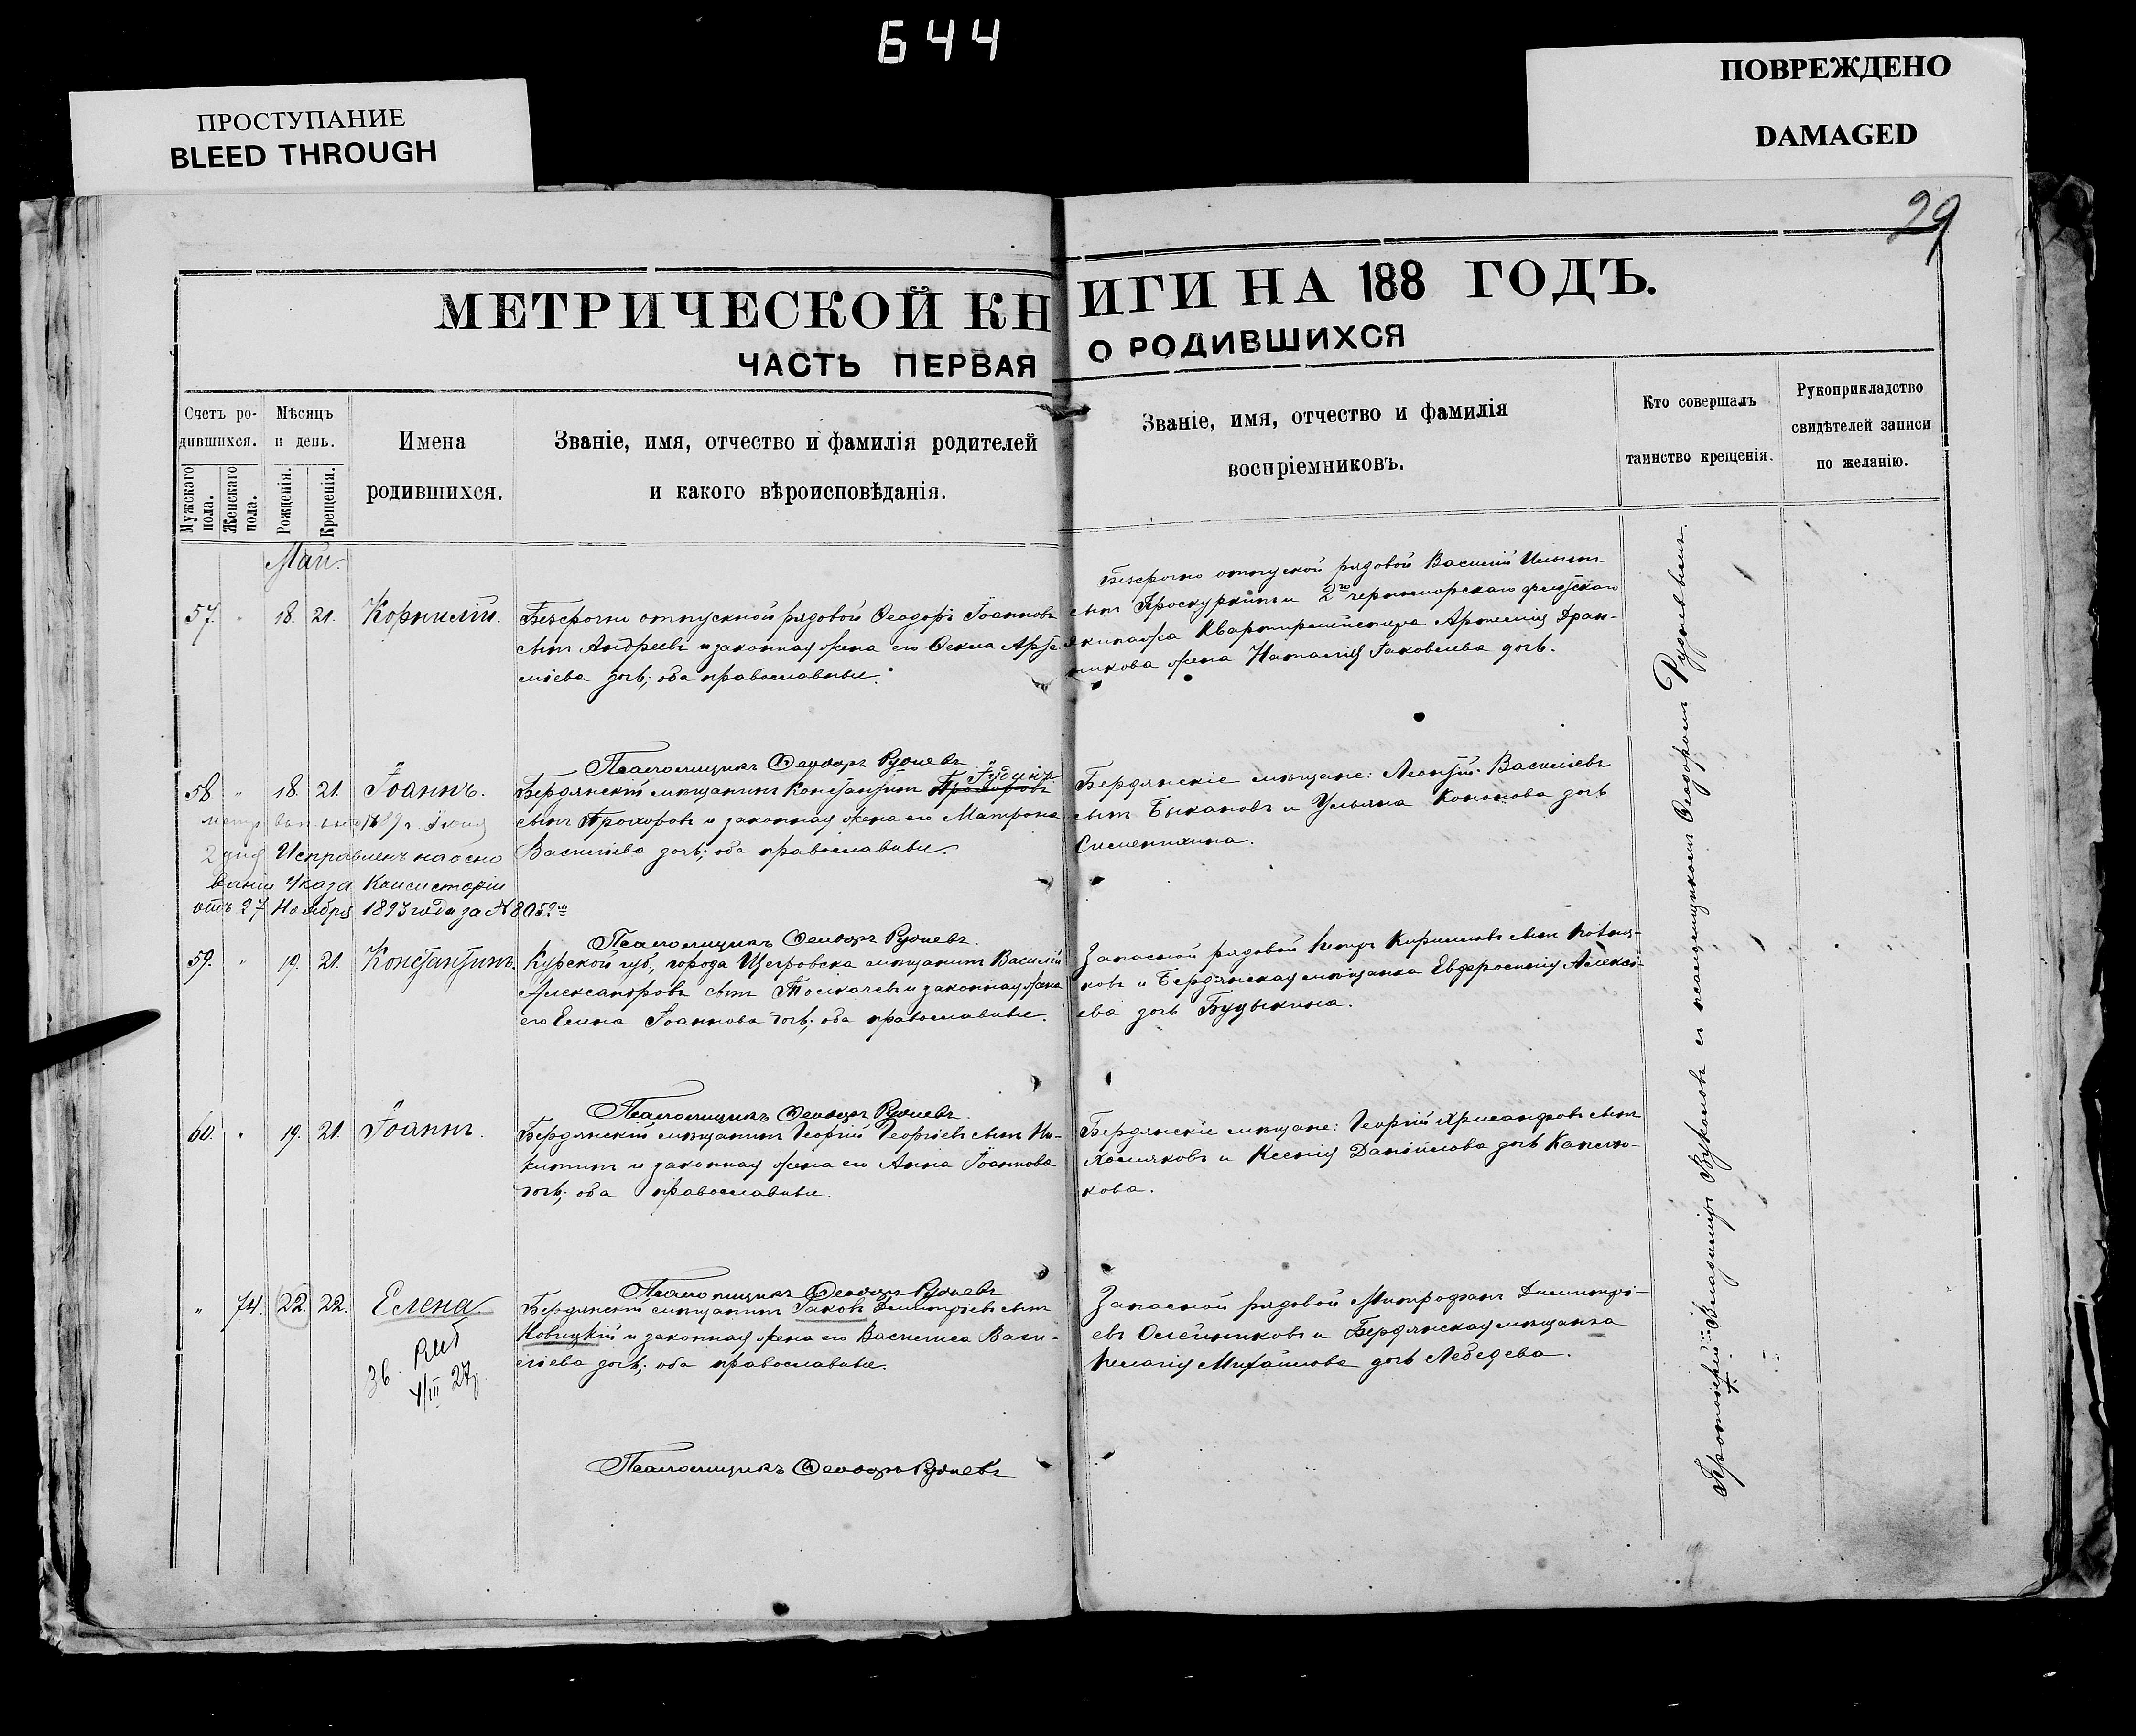 644
ПРОСТУПАНИЕ
BLEED THROUGH
ПОВРЕЖДЕНО
DAMAGED
29
МЕТРИЧЕСКОЙ КНИГИ НА 188 ГОДЪ.
ЧАСТЬ ПЕРВАЯ О РОДИВШИХСЯ
Счетъ ро-
дившихся.
Мужскаго пола.
Женскаго пола.
Мѣсяцъ
и день.
Рожденія.
Крещенія.
Имена
родившихся.
Званіе, имя, отчество и фамилія родителей
и какого вѣроисповѣданія.
Званіе, имя, отчество и фамилія
воспріемниковъ.
Кто совершалъ
таинство крещенія.
Рукоприкладство
свидѣтелей записи
по желанію.
Май.
57. " 18. 21. Корнилій.
Безсрочно отпускной рядовой Ѳеодоръ Іоанновъ
сынъ Андреевъ и законная жена его Ѳекла Арте
міева дочь; оба православные.
Безсрочно отпуской рядовой Василій Ильинъ
сынъ Проскуркинъ и 2го черноморскаго флотскаго
экипажа Квартирмейстера Артемія Дран-
никова жена Наталія Іаковлева дочь.
Псаломщикъ Ѳеодоръ Рудневъ
58. " 18. 21. Іоаннъ.
Бердянскій мѣщанинъ Константинъ Прохоровъ
сынъ Прохоровъ и законная жена его Матрона
Василіева дочь; оба православные.
Исправленъ на осно
ваніи Указа Консисторіи
отъ 27 Ноября 1893 года за № 8059
Бердянскіе мѣщане: Леонтій Василіевъ
сынъ Быкановъ и Ульяна Кононова дочь
Сименихина.
Псаломщикъ Ѳеодоръ Рудневъ.
59. " 19. 21. Константинъ.
Курской губ., города Щегровска мѣщанинъ Василій
Александровъ сынъ Толкачевъ и законная жена
его Елена Іоаннова дочь; оба православные.
Запасной рядовой Петръ Кирилловъ сынъ
ковъ и Бердянская мѣщанка Евфросинія Алексі-
ева дочь Будыкина.
Псаломщикъ Ѳеодоръ Рудневъ.
60. " 19. 21. Іоаннъ.
Бердянскій мѣщанинъ Георгій Георгіевъ сынъ Ни-
китинъ и законная жена его Анна Іоаннова
дочь; оба православные.
Бердянскіе мѣщане: Георгій Хрисанфовъ сынъ
Холмяковъ и Ксенія Даніилова дочь Капелю-
кова.
Псаломщикъ Ѳеодоръ Рудневъ
" 74. 22. 22. Елена.
Бердянскій мѣщанинъ Іаковъ Димитріевъ сынъ
Новицкій и законная жена его Василиса Васи-
ліева дочь; оба православные.
Запасной рядовой Митрофанъ Димитрі-
евъ Олейниковъ и Бердянская мѣщанка
Пелагія Михайлова дочь Лебедева.
Псаломщикъ Ѳеодоръ Рудневъ
Протоіерей Владиміръ Вуколовъ съ псаломщикомъ Ѳеодоромъ Рудневымъ.